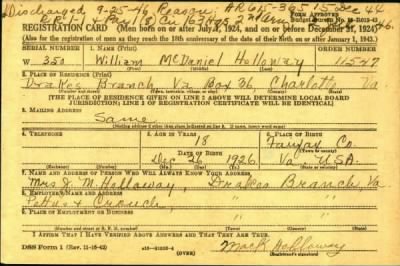 Discharged 9-25-46 Reason: AR 615-36 Dec 44
RR 1-1
REGISTRATION CARD (Men born on or after July 1, 1924, and on or before December 31, 1924)
(Also for the registration of men as they reach the 18th anniversary of the date of their birth on or after January 1, 1943.)
SERIAL NUMBER 1. NAME (Print) ORDER NUMBER
W 350 William McDaniel Holloway 11547
2. PLACE OF RESIDENCE (Print)
Drakes Branch Va Box 36 Charlotte Va
[THE PLACE OF RESIDENCE GIVEN ON LINE 2 ABOVE WILL DETERMINE LOCAL BOARD
JURISDICTION; LINE 2 OF REGISTRATION CERTIFICATE WILL BE IDENTICAL]
3. MAILING ADDRESS
Same
4. TELEPHONE 5. AGE IN YEARS 6. PLACE OF BIRTH
18 Fairfax Co.
DATE OF BIRTH
Dec 26 1926 Va USA.
7. NAME AND ADDRESS OF PERSON WHO WILL ALWAYS KNOW YOUR ADDRESS
Mrs J. M. Holloway, Drakes Branch, Va.
8. EMPLOYER'S NAME AND ADDRESS
Pettus & Crouch " "
9. PLACE OF EMPLOYMENT OR BUSINESS
I AFFIRM THAT I HAVE VERIFIED ABOVE ANSWERS AND THAT THEY ARE TRUE.
DSS Form 1 (Rev. 11-16-42) (OVER) Mack Holloway